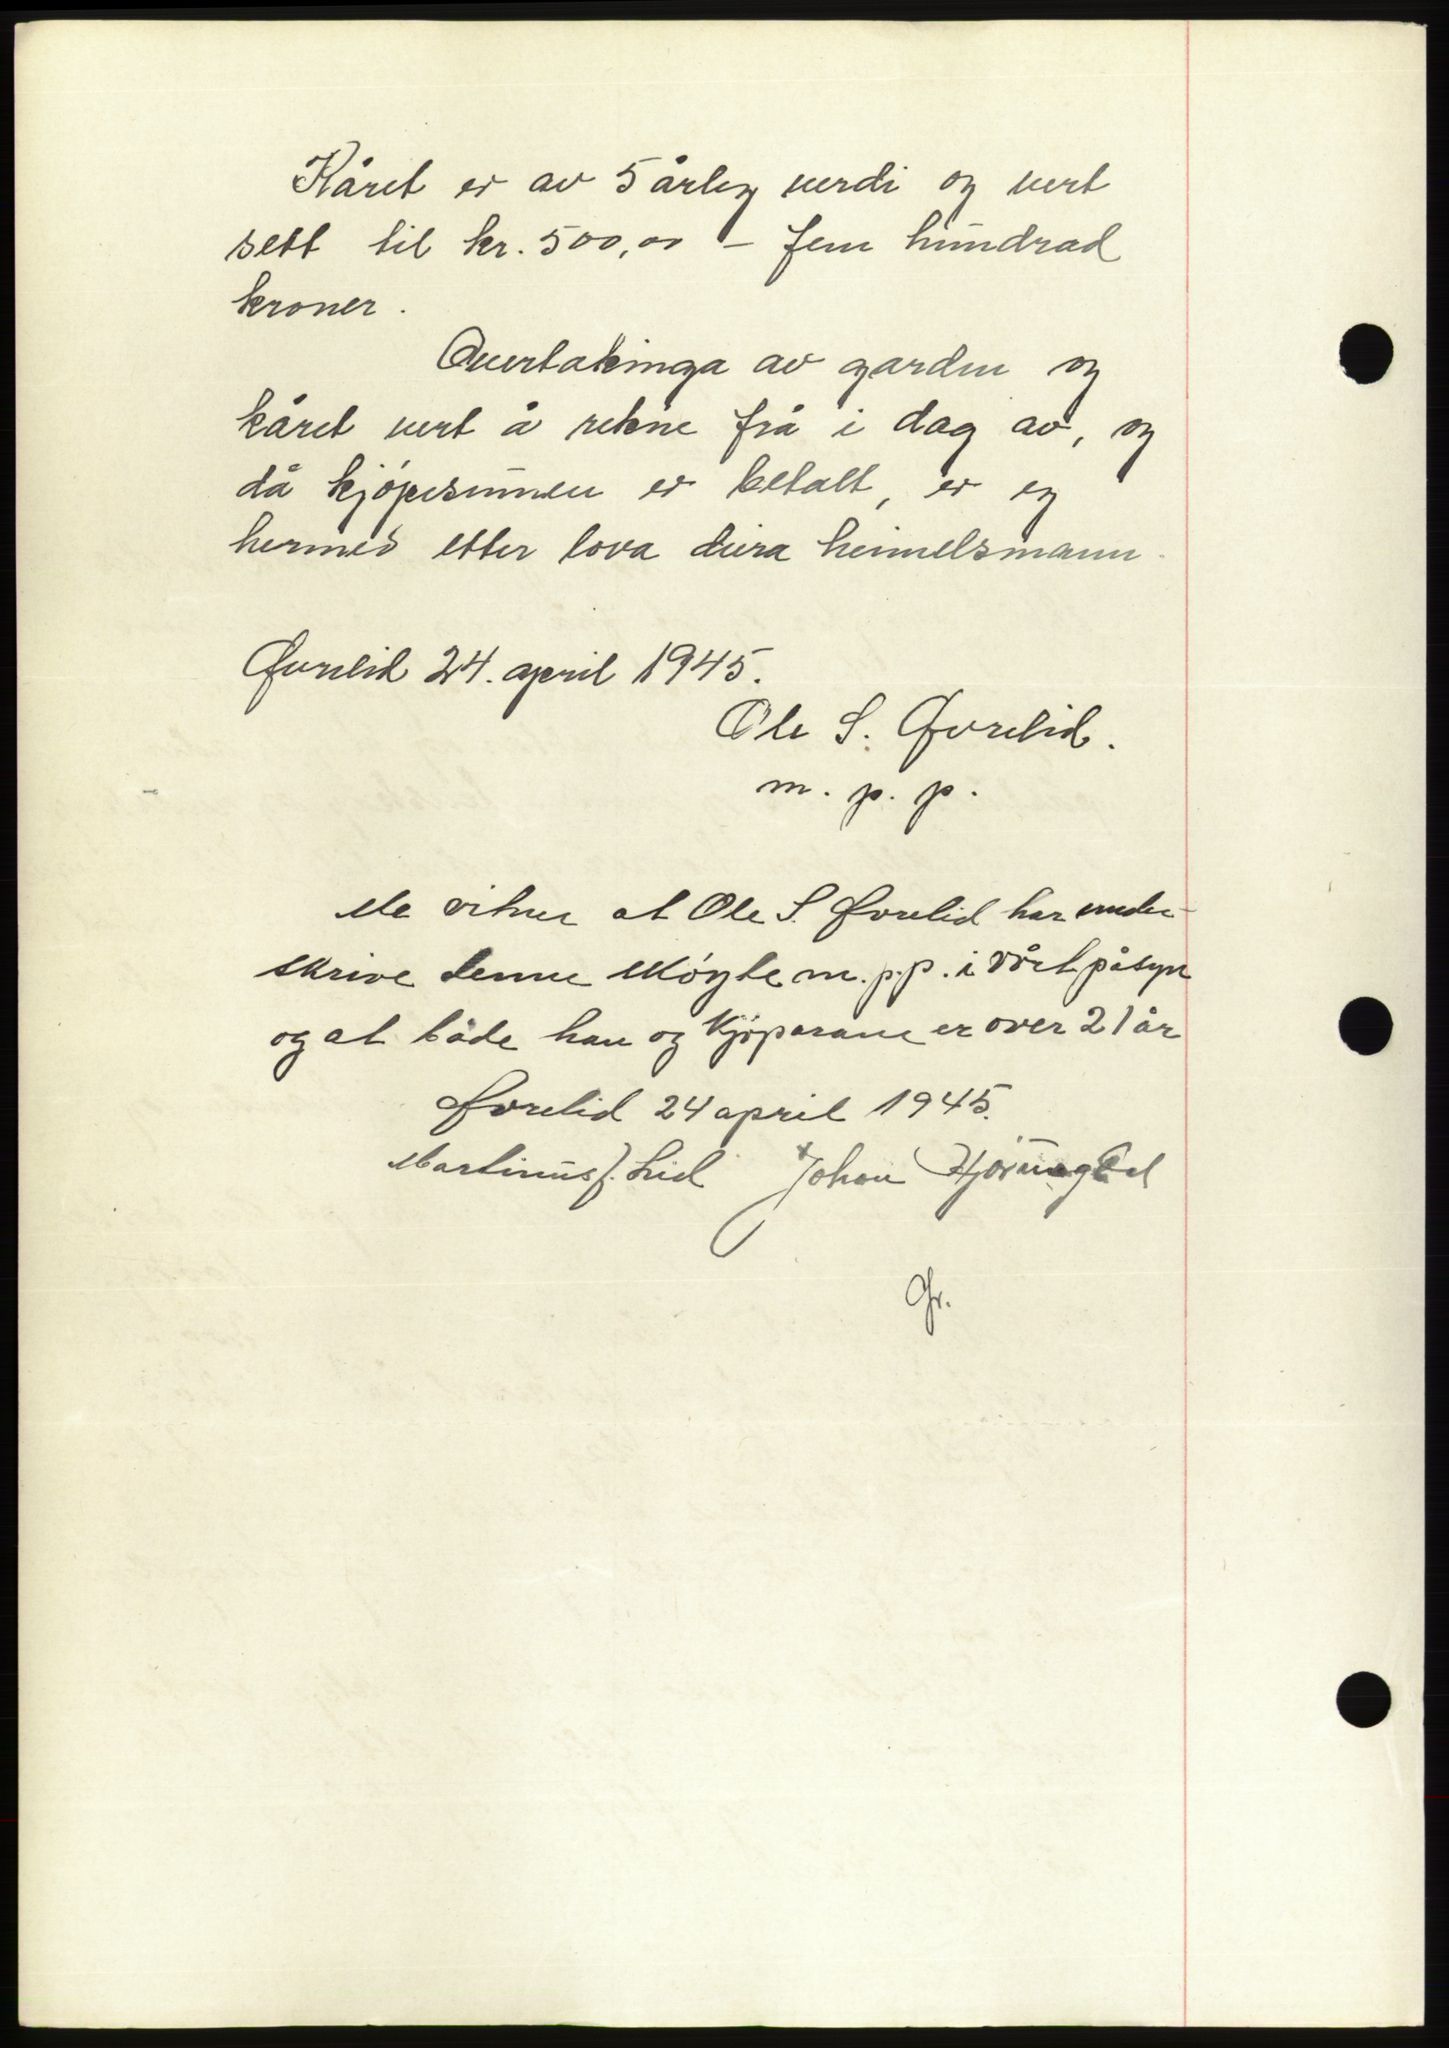 Kåret er av 5 årleg verdi og vert
sett til kr. 500,00 – fem hundrad
kroner.
Overtakinga av garden og
kåret vert å rekne frå i dag av, og
då kjöpesumen er betalt, er eg
hermed etter lova deira heimelsmann.
Øvrelid 24. april 1945.
Ole S. Øvrelid.
m. p. p.
Me vitner at Ole S. Øvrelid har under-
skrive denne skóyte m.p.p. i vårt påsyn
og at både han og kjöparane er over 21 år
Øvrelid 24 april 1945.
Martinus J. Lid Johan
Gr.